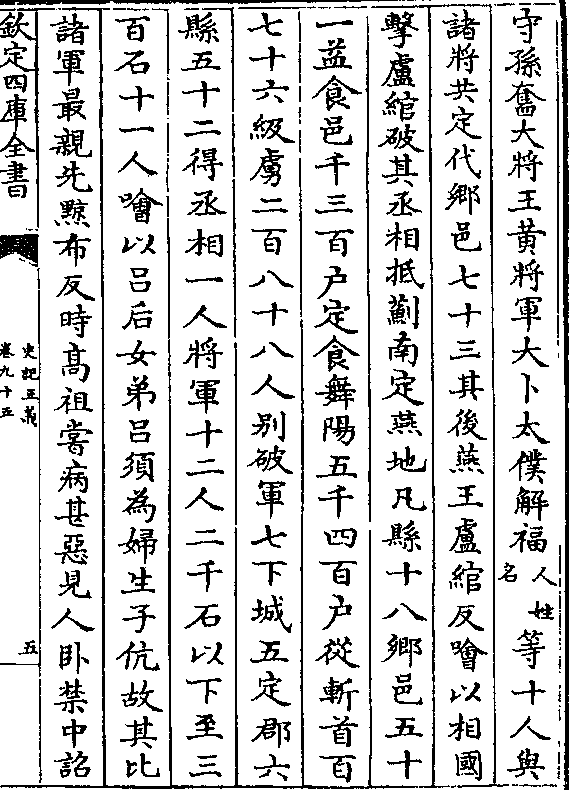 守孫奮大將王黃將軍大卜太僕解福人姓名等十人與
諸將共定代鄉邑七十三其後燕王盧綰反噲以相國
擊盧綰破其丞相抵薊南定燕地凡縣十八鄉邑五十
一益食邑千三百户定食舞陽五千四百户從斬首百
七十六級虜二百八十八人别破軍七下城五定郡六
縣五十二得丞相一人將軍十二人二千石以下至三
百石十一人噲以吕后女弟吕須為婦生子伉故其比
諸軍最親先黥布反時高祖嘗病甚惡見人卧禁中詔
欽定四庫全書
史記正義
卷九十五
五